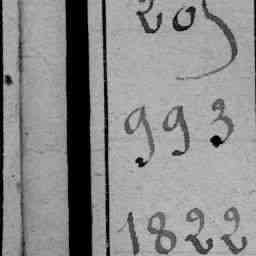 205
993
1822